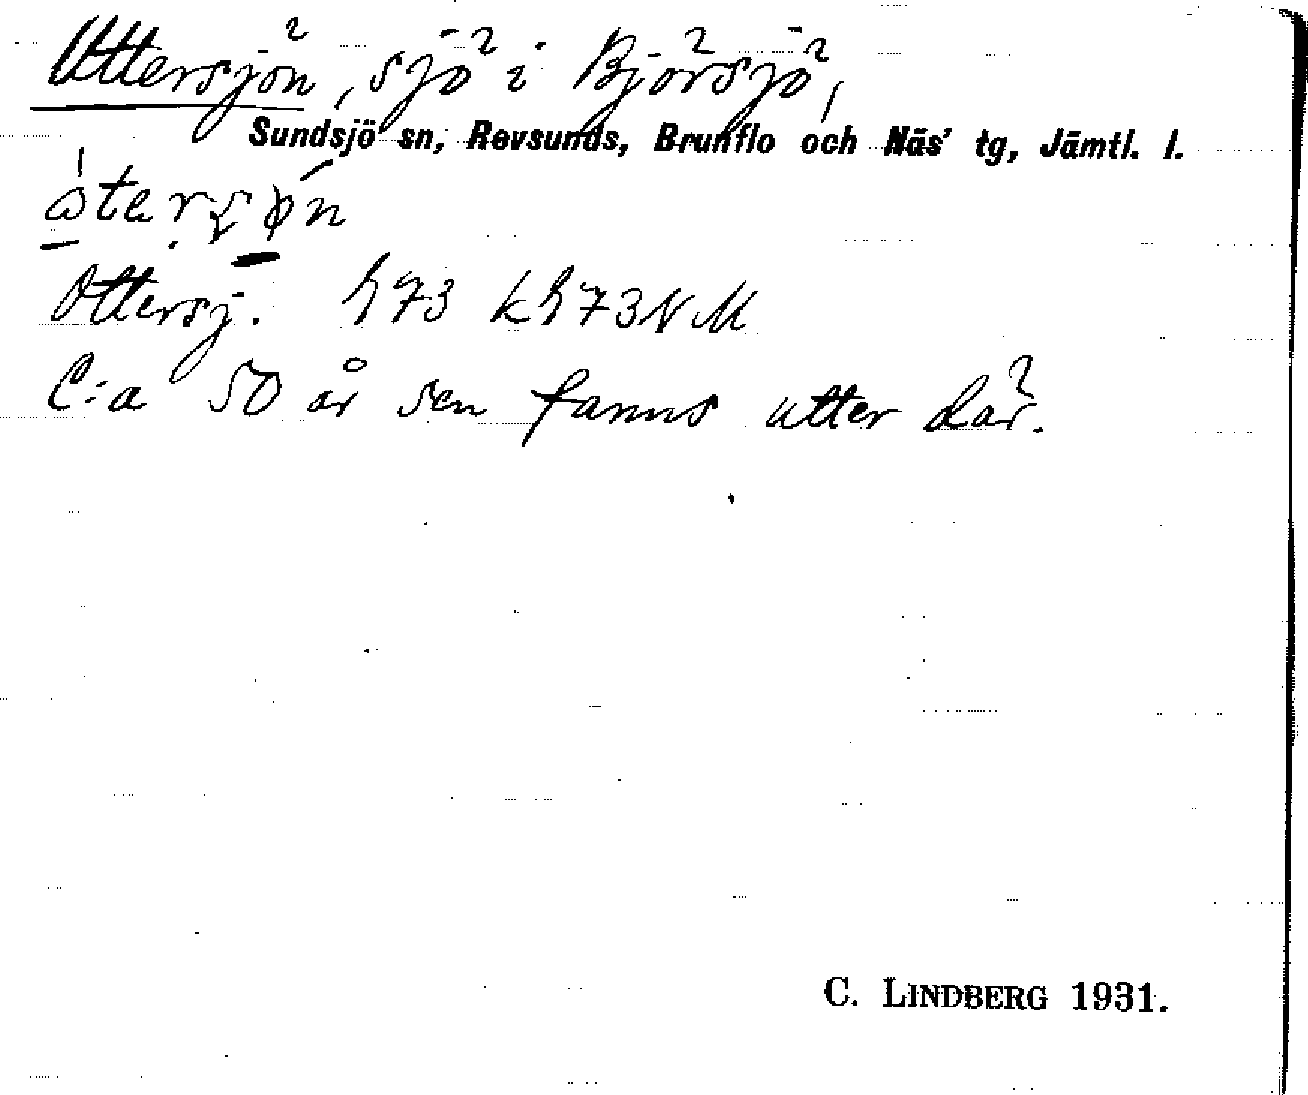 Uttersjön, sjö i Björsjö,
Sundsjö sn, Revsunds, Brunflo och Näs' tg, Jämtl. l.
Ottersj. h73 kh73NM
C:a 50 år sen fanns utter där.
C. LINDBERG 1931.